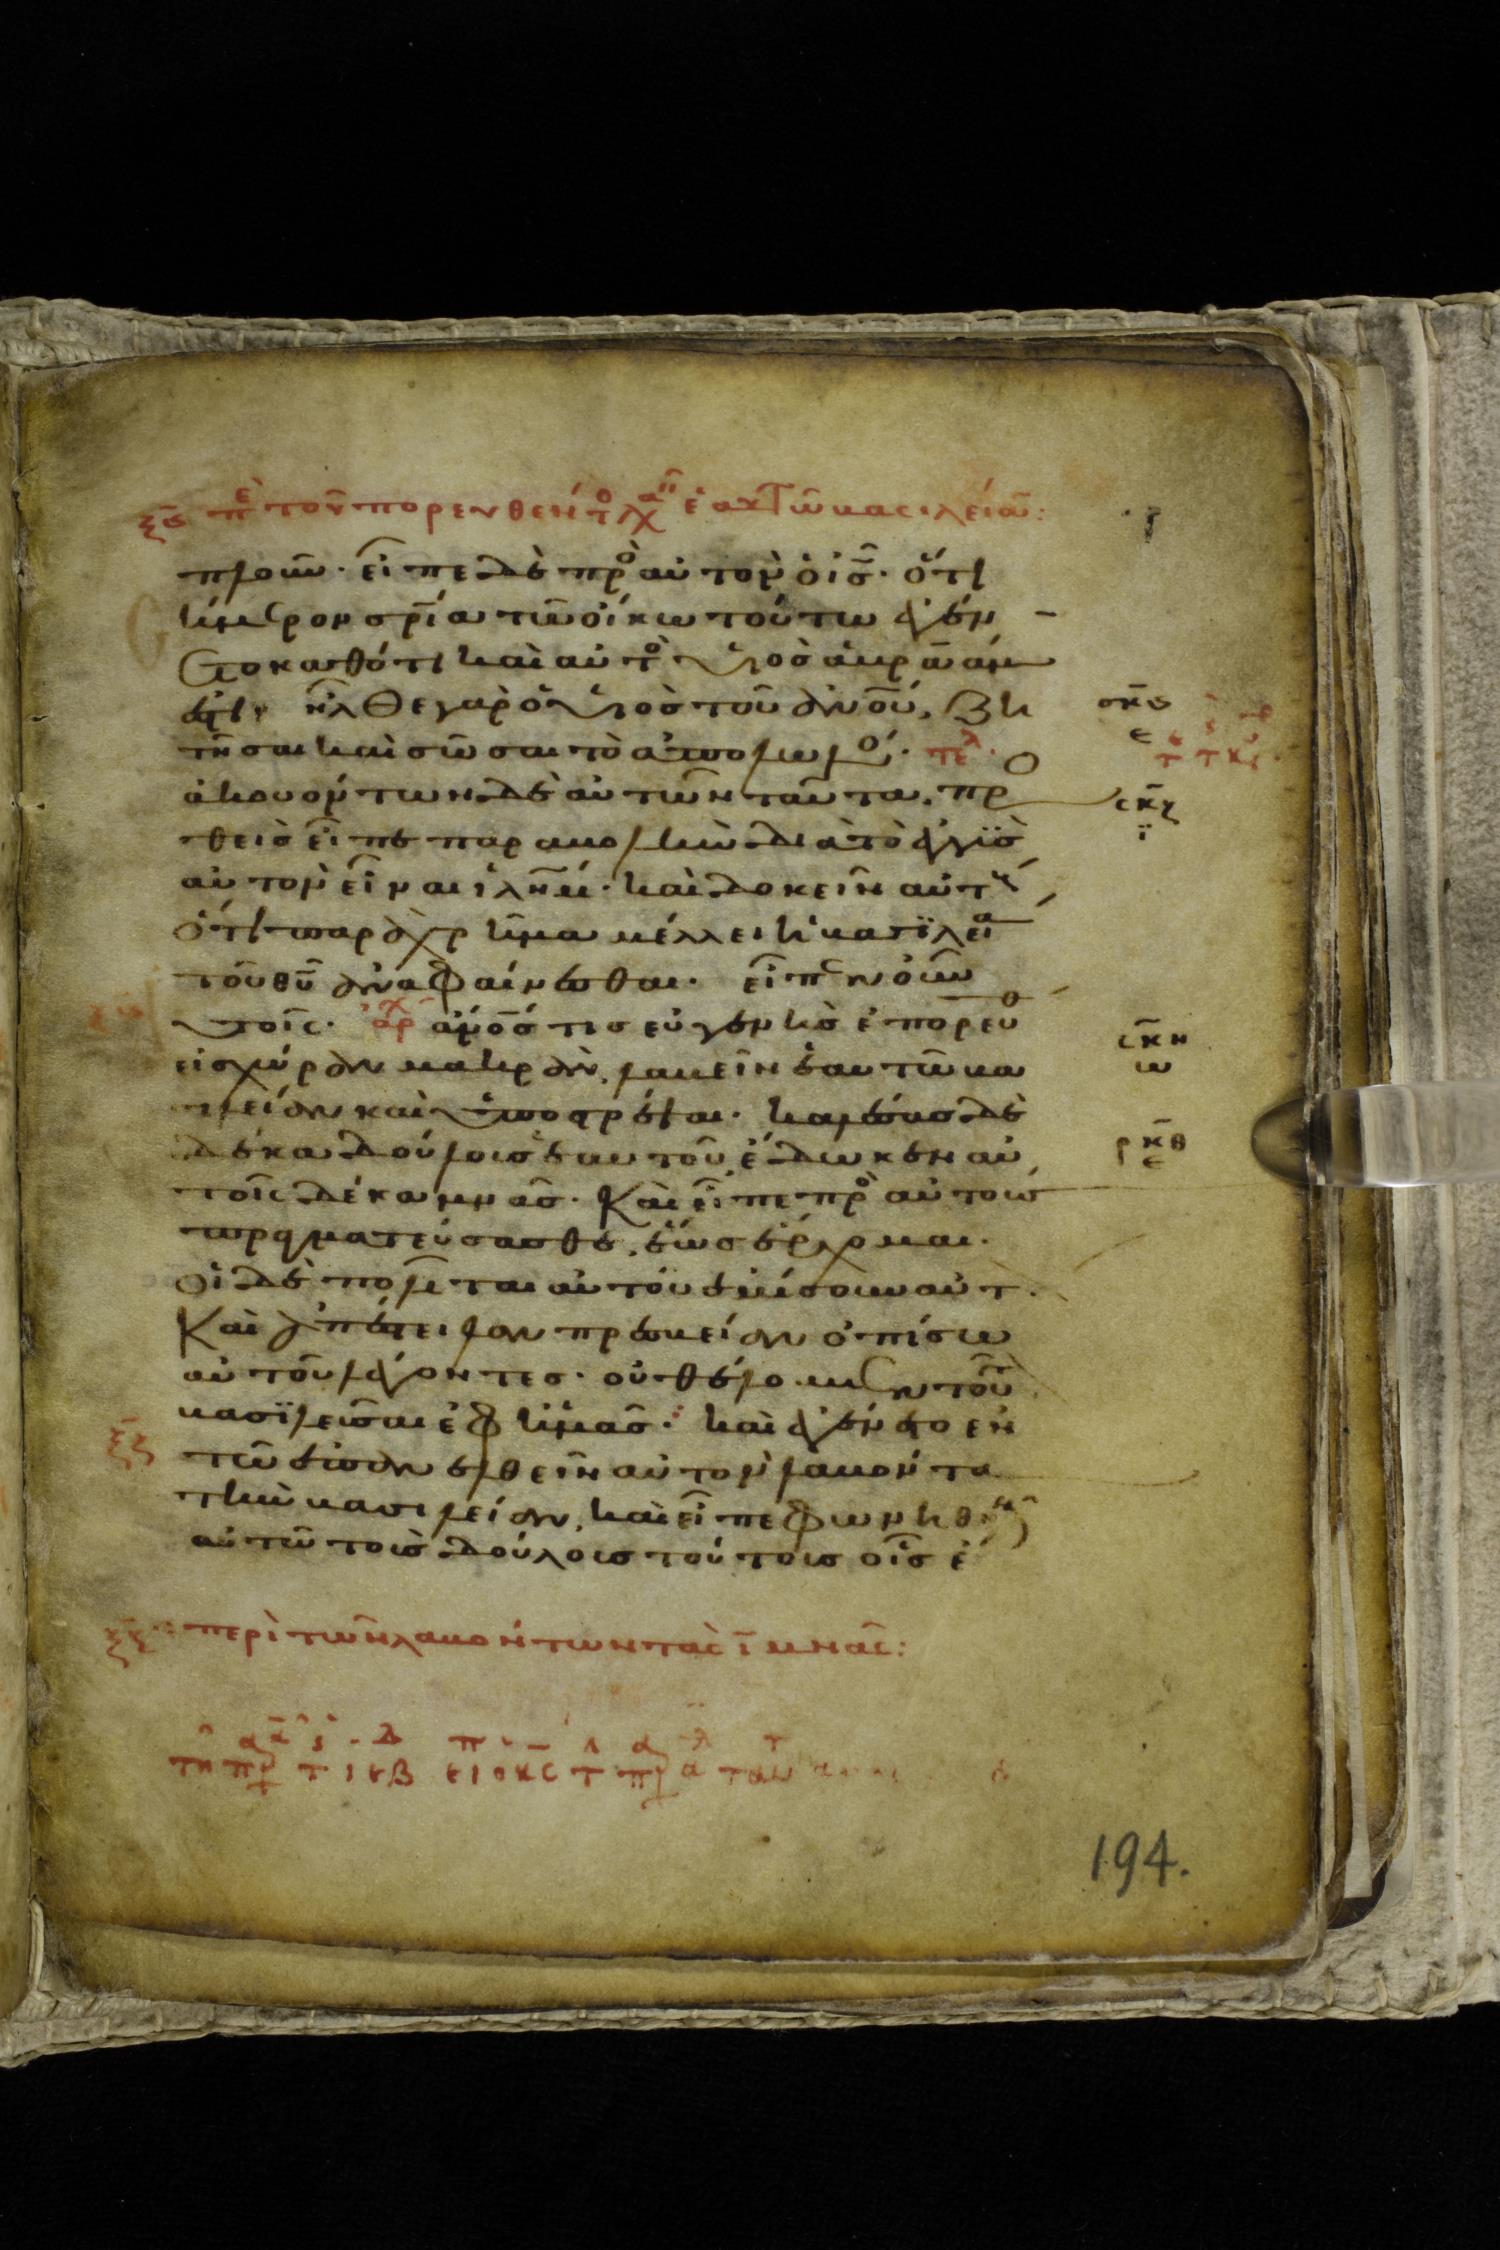 ξϛ περὶ τοῦ πορευθέντος λαβεῖν ἑαυτῶ βασιλείαν:
πλοῦν. εἶπε δὲ πρὸς αὐτὸν ὁ ις. ὅτι
σήμερον σρία τῶ οἴκω τούτω ἐγέν
ετο καθότι καὶ αὐτὸς υἱὸς ἀβραάμ
ἐστι. ἦλθε γὰρ ὁ υἱὸς τοῦ ανου, ζη
τῆσαι καὶ σῶσαι τὸ ἀπολωλός. τελ
ἀκουόντων δὲ αὐτῶν ταῦτα, προσ
θεὶς εἶπε παραβολὴν διὰ τὸ ἐγγὺς
αὐτὸν εἶναι ιλημ. καὶ δοκεῖν αὐτοὺς
ὅτι παραχρῆμα μέλλει ἡ βασιλεία
τοῦ θυ ἀναφαίνεσθαι. εἶπεν οὖν
αὐτοῖς. αρχ ανος τις εὐγενὴς ἐπορεύθ
εἰς χώραν μακρὰν, λαβεῖν ἑαυτῶ βα
σιλείαν καὶ ὑποστρέψαι. καλέσας δὲ
δέκα δούλους ἑαυτοῦ, ἔδωκεν αὐ
τοῖς δέκα μνᾶς. Καὶ εἶπε πρὸς αὐτοὺς
πραγματεύσασθε, ἕως ἔρχομαι.
οἱ δὲ πολῖται αὐτοῦ ἐμίσουν αὐτ.
Καὶ ἀπέστειλαν πρεσβείαν ὀπίσω
αὐτοῦ λέγοντες. οὐ θέλομεν τοῦτον
βασιλεῦσαι ἐφ ἡμᾶς. καὶ ἐγένετο ἐν
τῶ ἐπανελθεῖν αὐτὸν λαβόντα
τὴν βασιλείαν, καὶ εἶπε φωνηθῆναι
αὐτῶ τοὺς δούλους τούτους οἷς ἔ
σκϛ
ε
σκζ
ι
σκη
ω
σκθ
ε
ξζ
ξζ περὶ τῶν λαβόντων τὰς ι μνᾶς:
194.